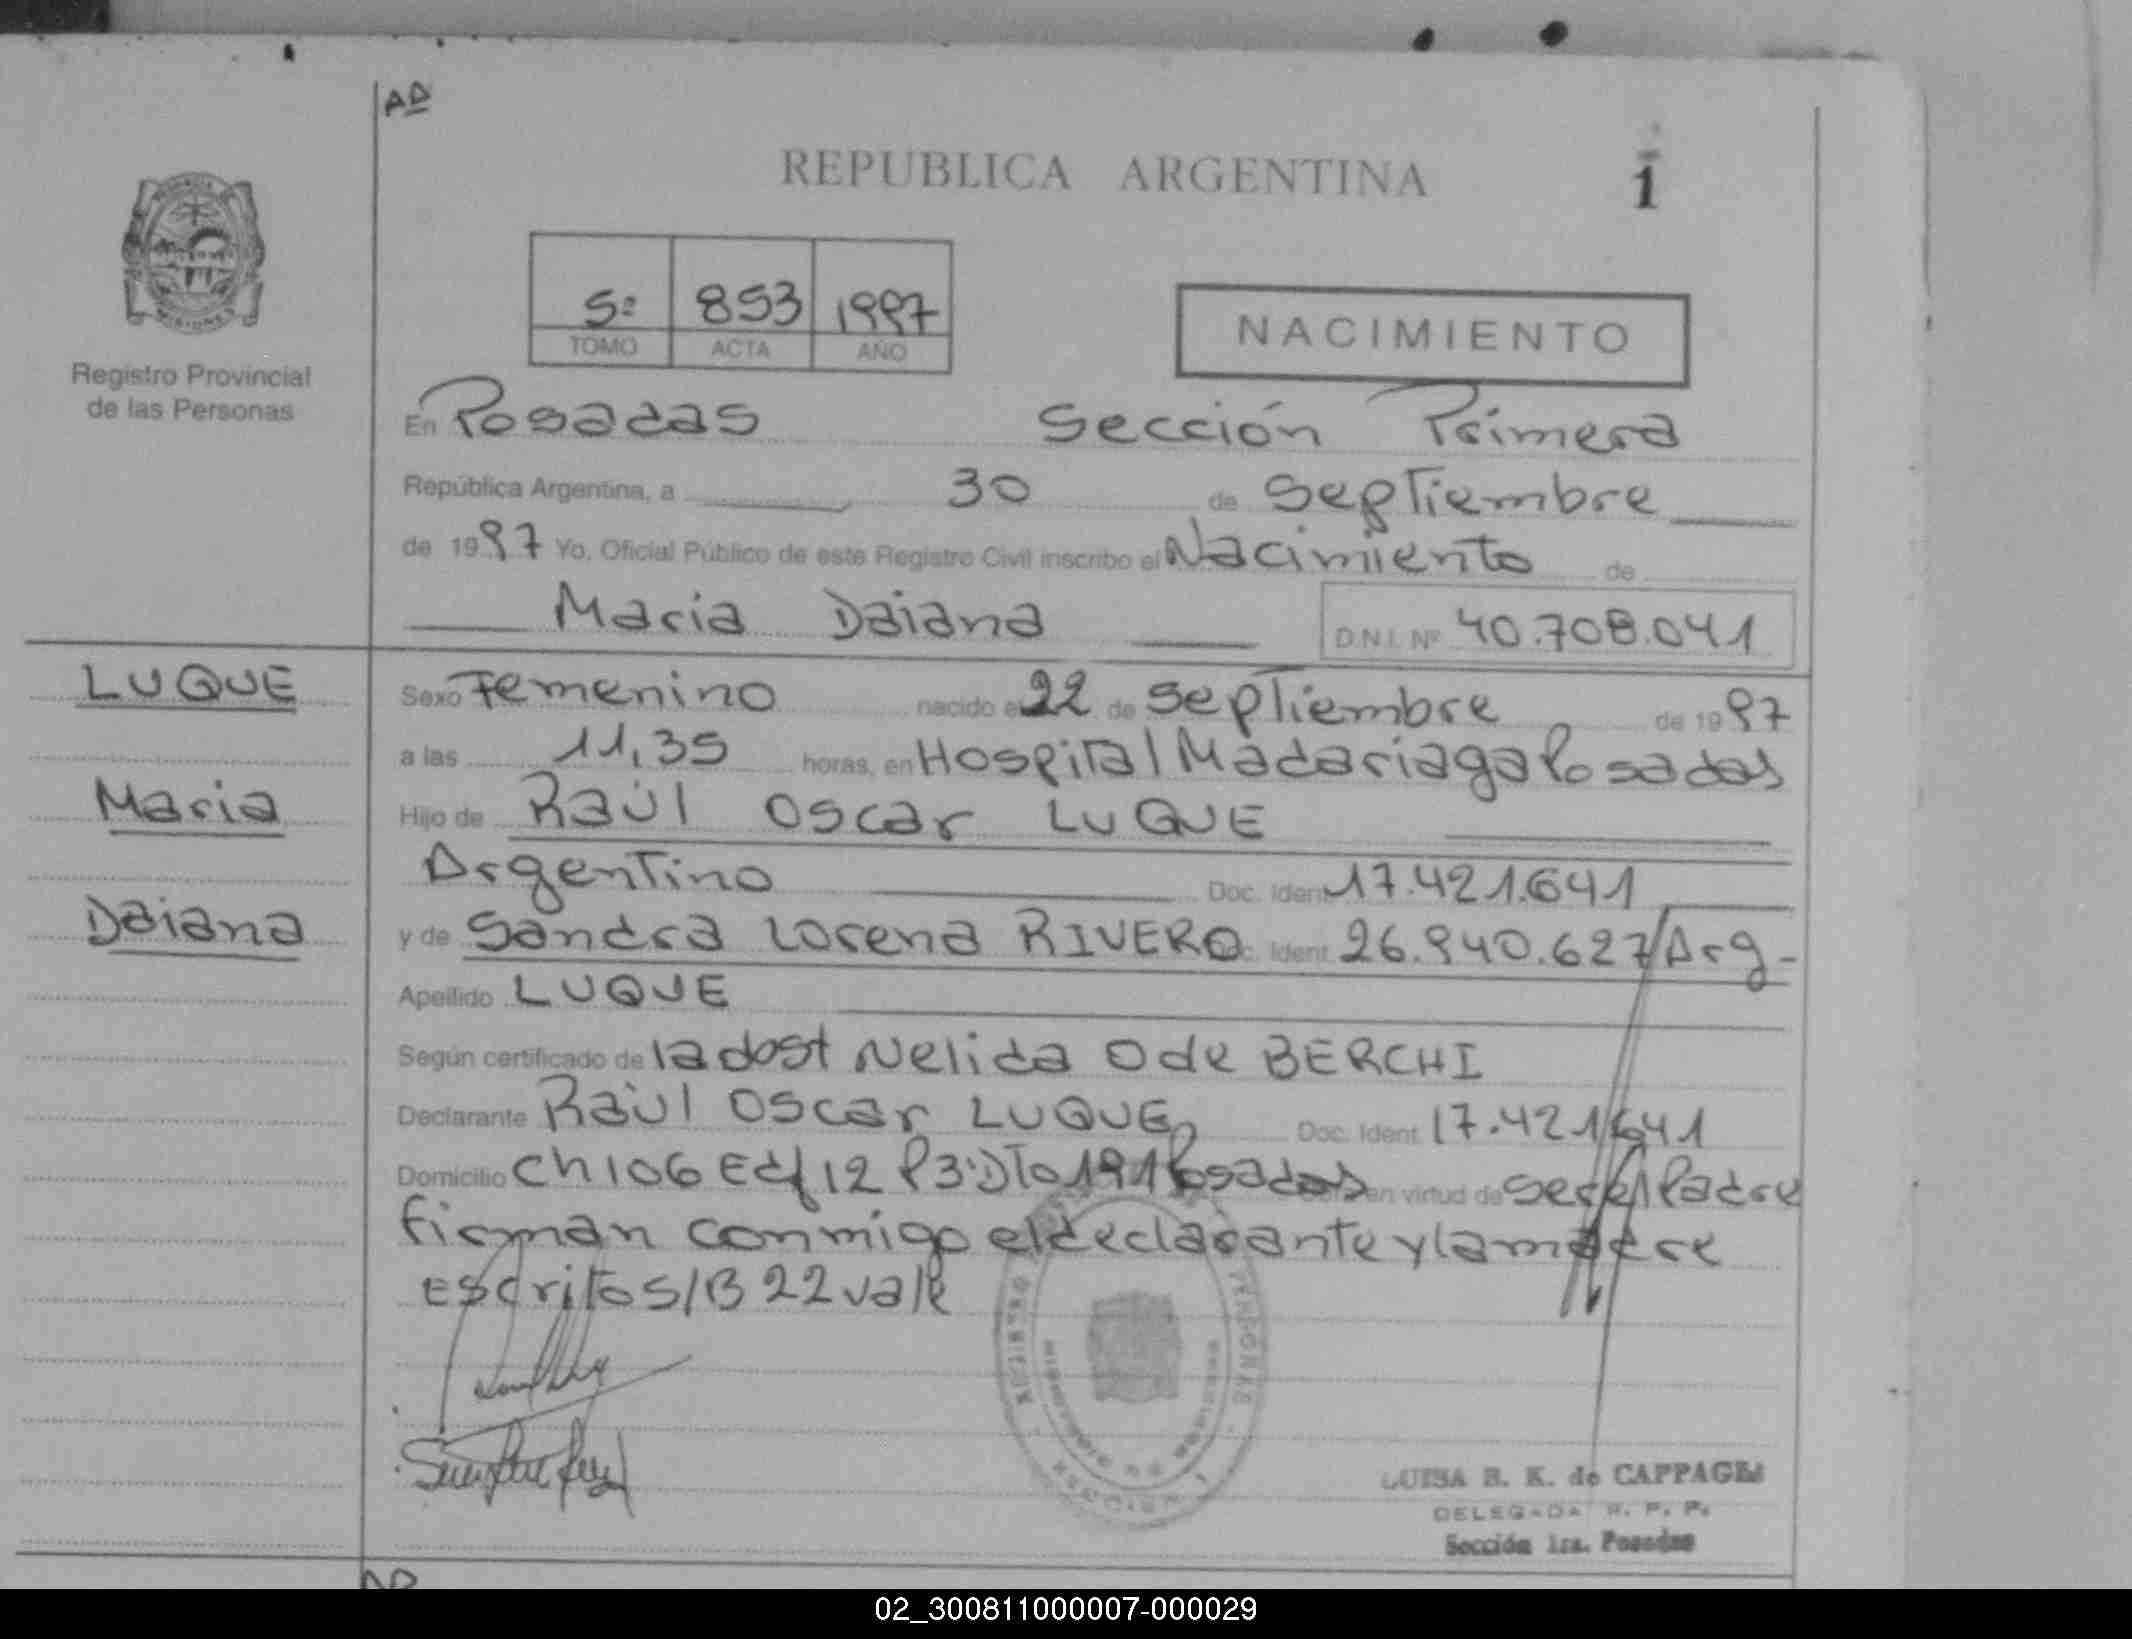 AD
REPUBLICA ARGENTINA
1
5º 853 1997
TOMO ACTA AÑO
NACIMIENTO
MISIONES
Registro Provincial
de las Personas
En Posadas Sección Primera
República Argentina, a 30 de Septiembre
de 1997 Yo, Oficial Público de este Registro Civil inscribo el Nacimiento de
Maria Daiana D.N.I. Nº 40.708.041
LUQUE
Maria
Daiana
Sexo Femenino nacido el 22 de Septiembre de 1997
a las 11,35 horas, en Hospital Madariaga Posadas
Hijo de Raúl Oscar LUQUE
Argentino Doc. Ident 17.421.641
y de Sandra Lorena RIVERO Doc. Ident 26.940.627/Arg-
Apellido LUQUE
Según certificado de la dost Nelida Ode BERCHI
Declarante Raúl Oscar LUQUE Doc. Ident 17.421.641
Domicilio Ch 106 Edf 12 P3º Dto 191 Posadas en virtud de ser el Padre
firman conmigo el declarante y la madre
Escritos/B 22 vale
LUISA B. K. de CAPPAGLI
DELEGADA R. P. P.
Sección 1ra. Posadas
02_300811000007-000029